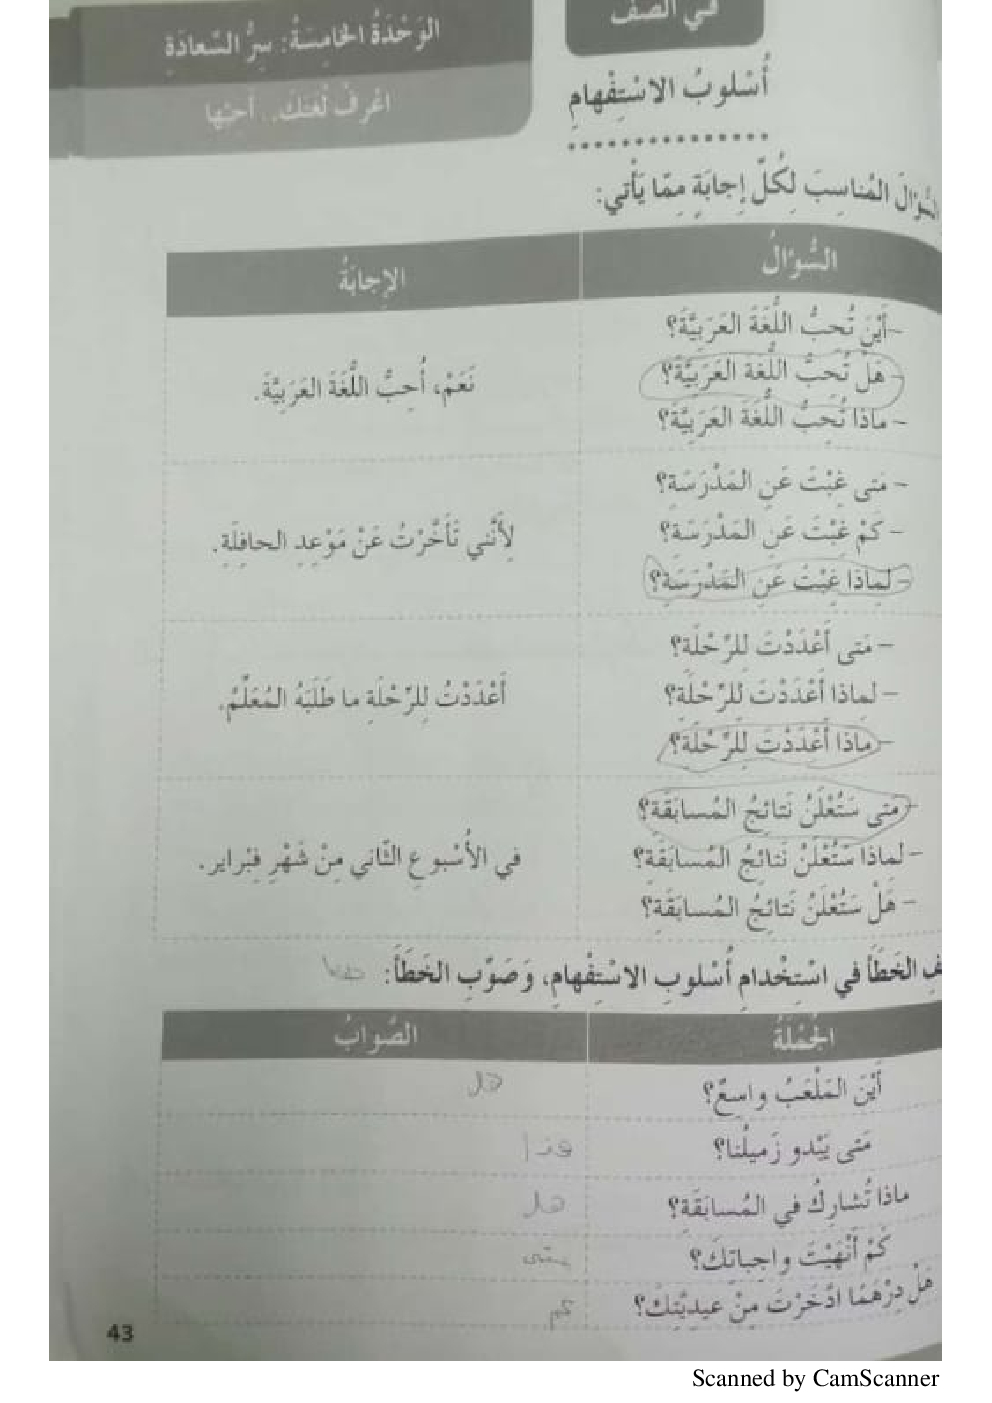 في الصف
الوَحْدَةُ الخامِسَةُ: سِرُّ السَّعادَةِ
أُسْلوبُ الاسْتِفْهامِ
اعْرِفْ لُغَتَكَ.. أَحِبَّها
السُّؤالَ المُناسِبَ لِكُلِّ إِجابَةٍ مِمّا يَأْتي:
السُّؤالُ
الإِجابَةُ
- أَيْنَ تُحِبُّ اللُّغَةَ العَرَبِيَّةَ؟
- هَلْ تُحِبُّ اللُّغَةَ العَرَبِيَّةَ؟
- ماذا تُحِبُّ اللُّغَةَ العَرَبِيَّةَ؟
نَعَمْ، أُحِبُّ اللُّغَةَ العَرَبِيَّةَ.
- مَتى غِبْتَ عَنِ المَدْرَسَةِ؟
- كَمْ غِبْتَ عَنِ المَدْرَسَةِ؟
- لِماذا غِبْتَ عَنِ المَدْرَسَةِ؟
لِأَنَّني تَأَخَّرْتُ عَنْ مَوْعِدِ الحافِلَةِ.
- مَتى أَعْدَدْتَ لِلرِّحْلَةِ؟
- لِماذا أَعْدَدْتَ لِلرِّحْلَةِ؟
- ماذا أَعْدَدْتَ لِلرِّحْلَةِ؟
أَعْدَدْتُ لِلرِّحْلَةِ ما طَلَبَهُ المُعَلِّمُ.
- مَتى سَتُعْلَنُ نَتائِجُ المُسابَقَةِ؟
- لِماذا سَتُعْلَنُ نَتائِجُ المُسابَقَةِ؟
- هَلْ سَتُعْلَنُ نَتائِجُ المُسابَقَةِ؟
في الأُسْبوعِ الثّاني مِنْ شَهْرِ فِبْرايِر.
الخَطَأَ في اسْتِخْدامِ أُسْلوبِ الاسْتِفْهامِ، وَصَوِّبِ الخَطَأَ:
الجُمْلَةُ
الصَّوابُ
أَيْنَ المَلْعَبُ واسِعٌ؟
هل
مَتى يَبْدو زَميلُنا؟
ماذا تُشارِكُ في المُسابَقَةِ؟
هل
كَمْ أَنْهَيْتَ واجِباتِكَ؟
متى
هَلْ دِرْهَمًا ادَّخَرْتَ مِنْ عيدِيَّتِكَ؟
كم
43
Scanned by CamScanner